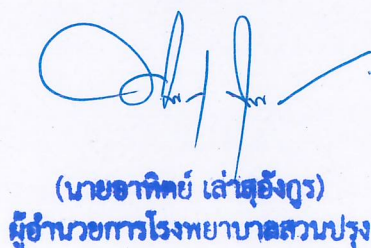 (นายอาทิตย์ เล่าสุอังกูร)
ผู้อำนวยการโรงพยาบาลสวนปรุง